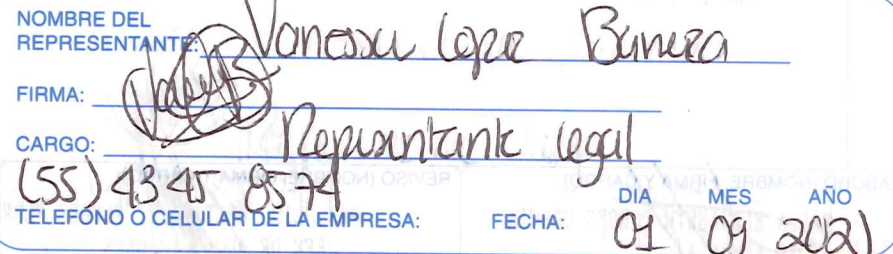 NOMBRE DEL
REPRESENTANTE: Vanessa Lopez Barrera
FIRMA:
CARGO: Representante legal
(55) 4345 8574
TELEFONO O CELULAR DE LA EMPRESA:
FECHA: DIA MES AÑO
01 09 2021